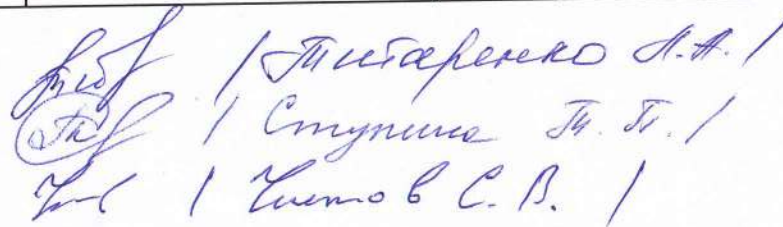 / Титаренко Л.А. /
/ Ступина Т.П. /
/ Чистов С.В. /